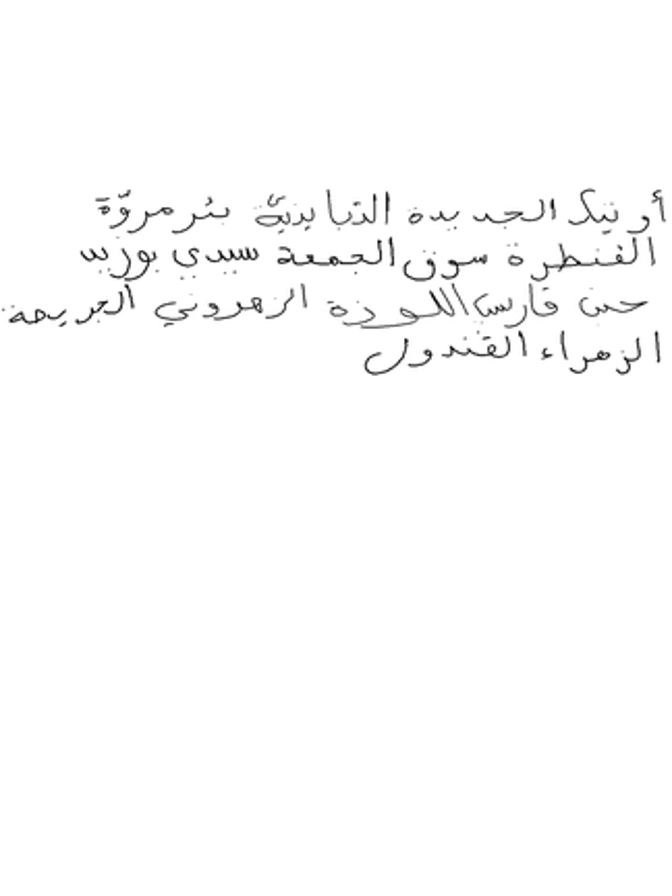 أوتيك الجديدة الذيابيّة بئر مروّة
الفنطرة سوق الجمعة سيدي بوزيد
حي فارس اللوزة الزهروني الجريصة
الزهراء القندول